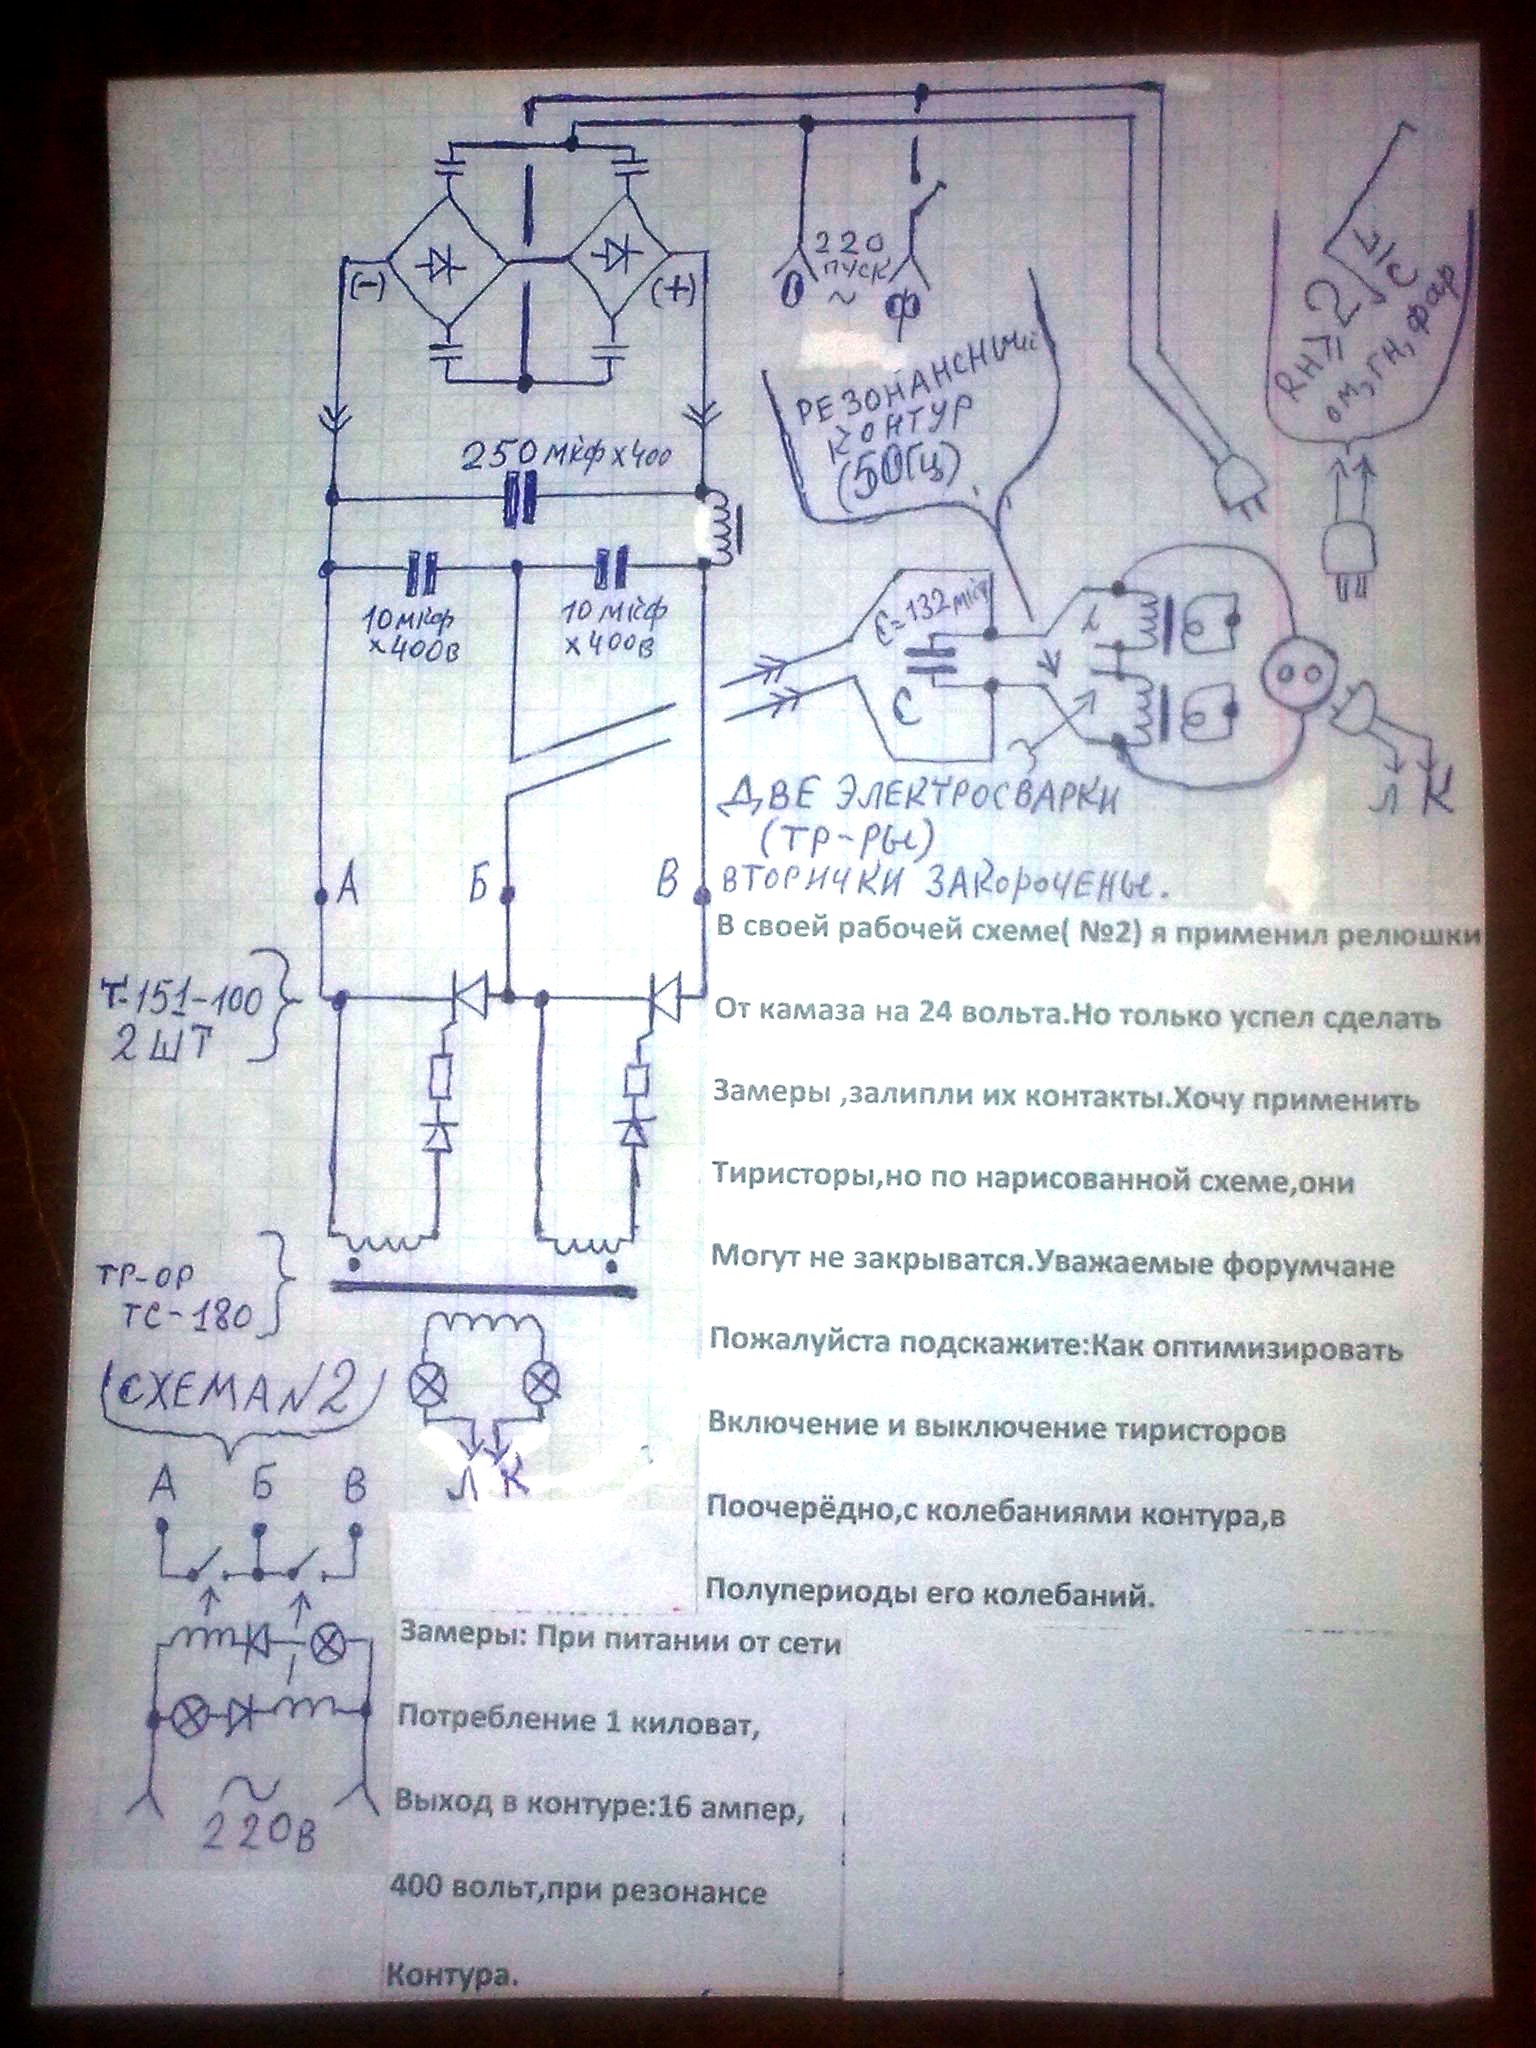 220
ПУСК
~
0
Ф
(-)
(+)
RH ≥ 2√L/C
ОМ, ГН, ФАР
РЕЗОНАНСНЫЙ
КОНТУР
(50Гц)
250 мкф х400
10 мкф
х400в
10 мкф
х400в
С=132 мкф
С
L
Л К
ДВЕ ЭЛЕКТРОСВАРКИ
(ТР-РЫ)
ВТОРИЧКИ ЗАКОРОЧЕНЫ.
А Б В
Т-151-100
2 ШТ
В своей рабочей схеме( №2) я применил релюшки
От камаза на 24 вольта.Но только успел сделать
Замеры ,залипли их контакты.Хочу применить
Тиристоры,но по нарисованной схеме,они
Могут не закрыватся.Уважаемые форумчане
Пожалуйста подскажите:Как оптимизировать
Включение и выключение тиристоров
Поочерёдно,с колебаниями контура,в
Полупериоды его колебаний.
ТР-ОР
ТС-180
Л К
(СХЕМА N2)
А Б В
~
220В
Замеры: При питании от сети
Потребление 1 киловат,
Выход в контуре:16 ампер,
400 вольт,при резонансе
Контура.